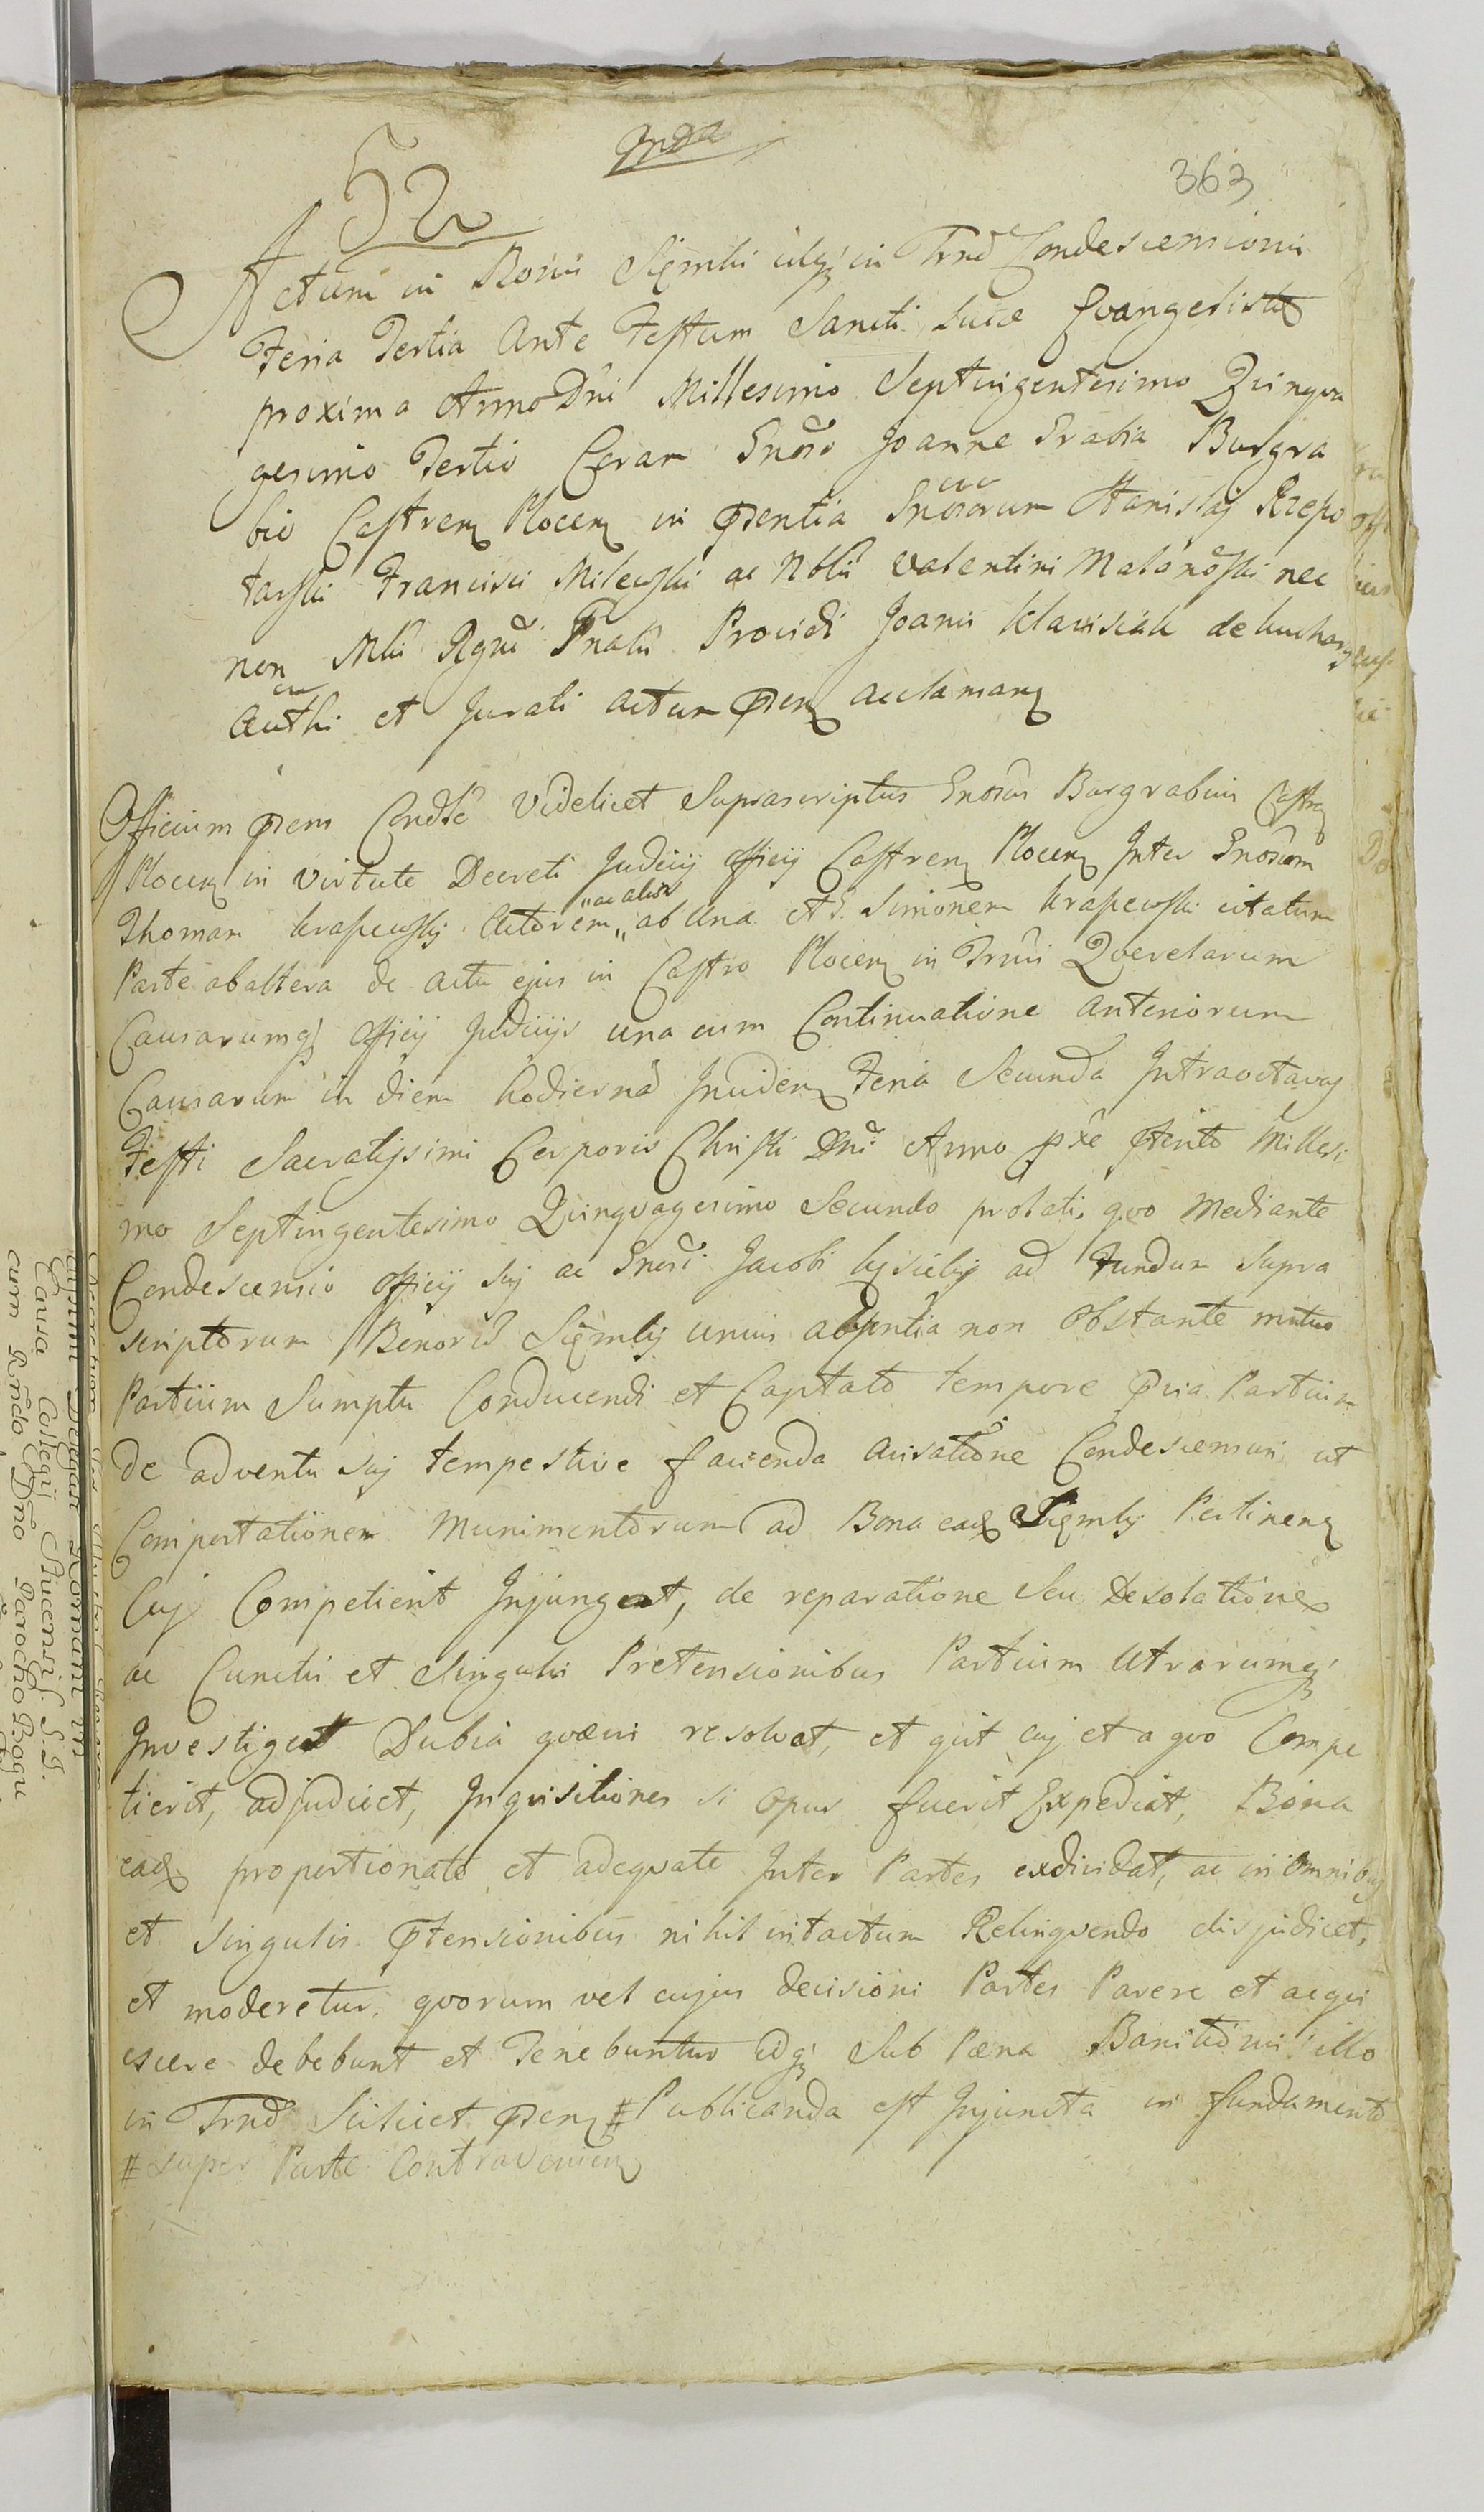 363
52
Actum in Bonis Sięmki ibq in Trnō Condescensionis
Feria Tertia Ante Festum Sancti Lucæ Evangelistæ
proxima Anno Dni Millesimo Septingentesimo Quinqva
gesimo Tertio Coram Gnoso Joanne Grabia Burgra
bio Castren Plocen in pntia Gnosorum Stanislai Rzepo
tarski Francisci Milewski ac Nbli Valentini Malanoski nec
non Mli Rgni Gnalis Providi Joanis Klawisiak de
authi et Jurati actum pnsen acclaman
Officium pnsens Condse Videlicet Suprascriptus Gnosus Burgrabius Castren
Plocen in Virtute Decreti Judicij officij Castren Plocen Inter Gnosum
Thomam Krasewski Actorem ,, ab Una et G. Simonem Krasewski citatum
,, ac alios
Parte ab altera de actu ejus in Castro Plocen in Trnis Qverelarum
Causarumq officij Judicijs una cum Continuatione anteriorum
Causarum in diem hodierna Inciden Feria Secunda Intra octavas
Festi Sacratissimi Corporis Christi Dni Anno pxe pterito Millesi
mo Septingentesimo Qvinqvagesimo Secundo prolati, qvo Mediante
Condescensio officij sui ac Gnosi Jacobi ad Fundum supra
scriptorum Bonorum Sięmky unius absntia non Obstante mutuo
Partium Sumptu Conducendi et Captato tempore pvia Partium
de adventu sui tempestive facienda avisatione Condescensuri ut
Comportationem Munimentorum ad Bona eadem Sięmky Pertinen
Cuj Competierit Injungat, de reparatione seu Desolatione
ac Cunctis et Singulis Pretensionibus Partium Utrarumq
Investiget Dubia qvævis resolvat, et qvit cuj et a qvo Compe
tierit, adjudicet, Inqvisitiones si opus fuerit Expediat, Bona
eadem proportionate et adeqvate Inter Partes exdividat, ac in omnibus
et singulis ptensionibus nihil intactum Relinqvendo disjudicet,
et moderetur. qvorum vel cujus decisioni Partes Parere et acqvi
escere debebunt et Tenebuntur idq Sub Pæna Banitionis illo
in Trnō Scilicet pnsen # Publicanda est Injuncta in fundamento
# super Parte Contravenien
Causa Collegij S. J.
cum Rndo Dno Parocho Bogu